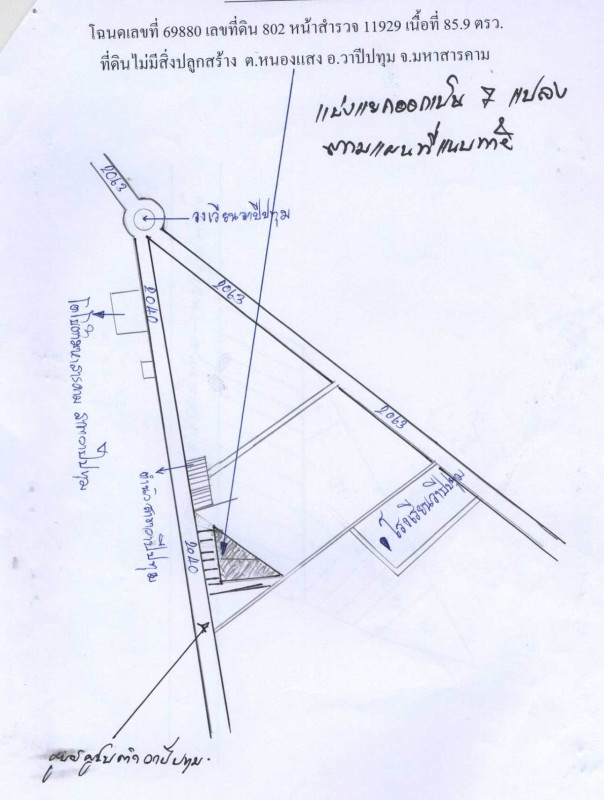 โฉนดเลขที่ 69880 เลขที่ดิน 802 หน้าสำรวจ 11929 เนื้อที่ 85.9 ตรว.
ที่ดินไม่มีสิ่งปลูกสร้าง ต.หนองแสง อ.วาปีปทุม จ.มหาสารคาม
แบ่งแยกออกเป็น 7 แปลง
ตามแผนที่แนบท้าย
2063
วงเวียนวาปีปทุม
2063
2040
2063
โรงเรียนวาปีปทุม
2040
วาปีปทุม